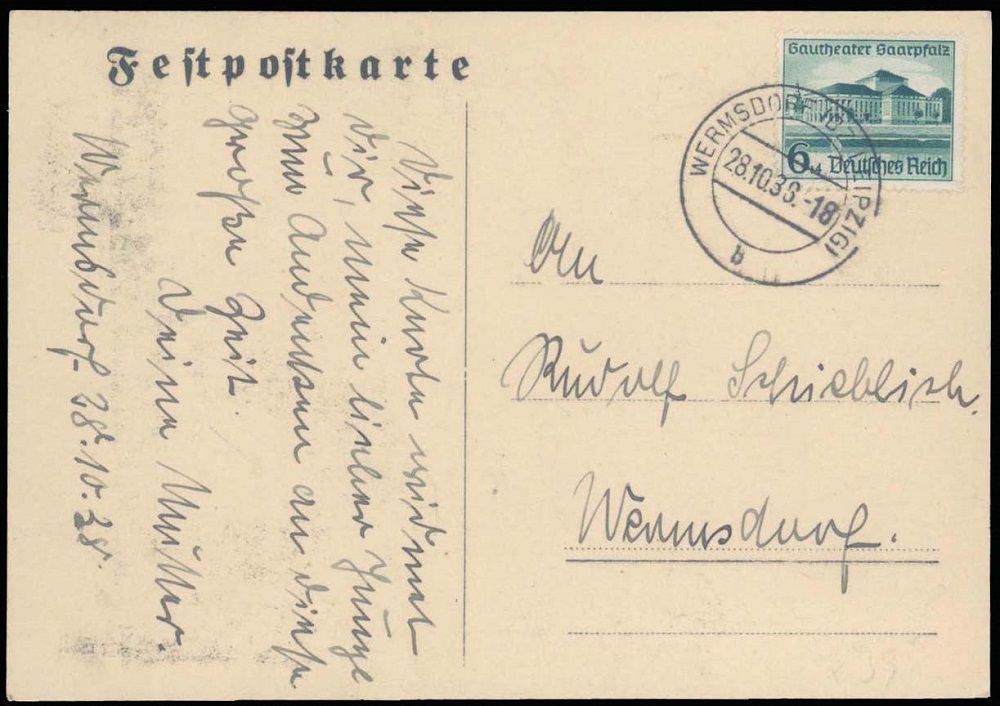 Festpostkarte
Gautheater Saarpfalz
6 Deutsches Reich
WERMSDORF (BZ. LEIPZIG)
28.10.38.-18
b
Diese Karte widmet
Dir, mein lieber Junge
zum Andenken an diese
große Zeit.
Deine Mutter.
Wermsdorf 28.10.38.
An
Rudolf Schieblich.
Wermsdorf.